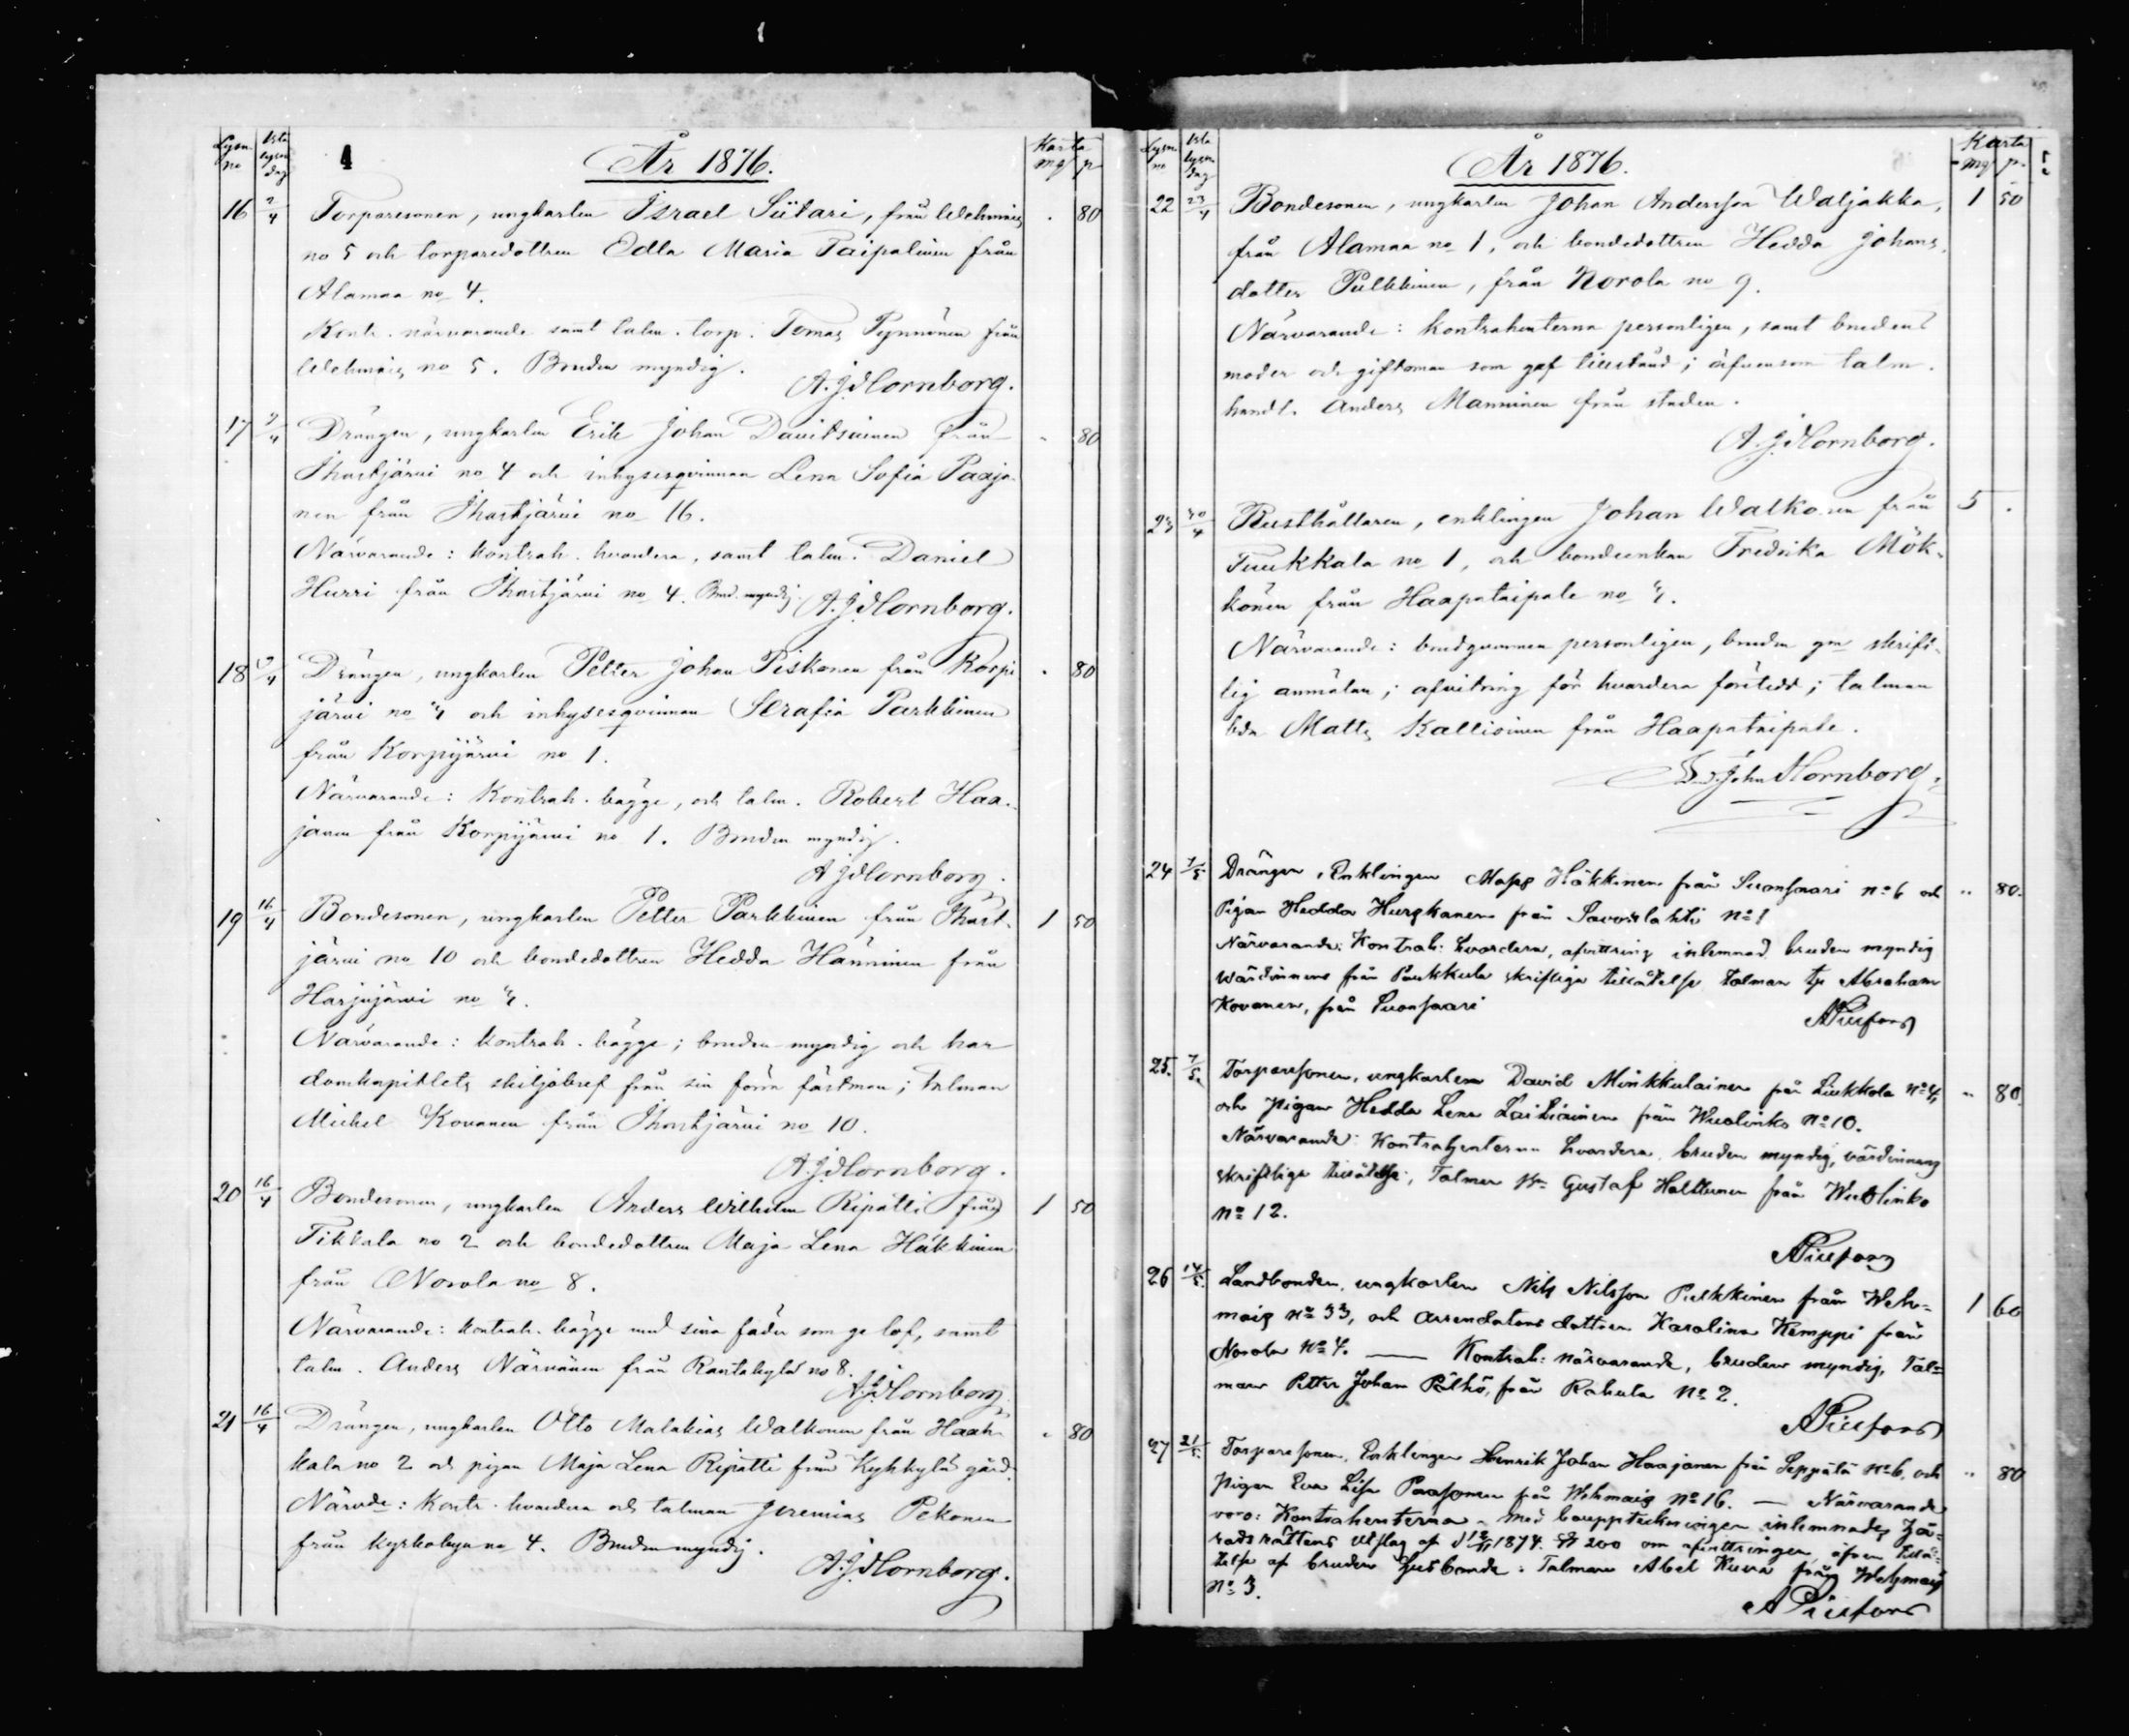 Lysn. no
1sta lysn. dag
4
År 1876.
Karta
mg p
16 2/4 Torparesonen, ungkarlen Israel Siitari, från Wehmais . 80
no 5 och torparedottren Edla Maria Taipalinen från
Alamaa no 4.
Kontr. närvarande samt talm. torp. Tomas Pynnönen från
Wehmais no 5. Bruden myndig.
A. J. Hornborg.
17 9/4 Drängen, ungkarlen Erik Johan Davitsainen från . 80
Ihastjärvi no 4 och inhysesqvinnan Lena Sofia Paaja-
nen från Ihastjärvi no 16.
Närvarande: kontrah. hvardera, samt talm. Daniel
Hurri från Ihastjärvi no 4. Brud. myndig. A. J. Hornborg.
18 9/4 Drängen, ungkarlen Petter Johan Piskonen från Korpi- . 80
järvi no 4 och inhysesqvinnan Serafia Parkkinen
från Korpijärvi no 1.
Närvarande: Kontrah. bägge, och talm. Robert Haa-
janen från Korpijärvi no 1. Bruden myndig.
A J Hornborg.
19 16/4 Bondesonen, ungkarlen Petter Parkkinen från Ihast- 1 50
järvi no 10 och bondedottren Hedda Hänninen från
Harjujärvi no 4.
Närvarande: kontrah. bägge; bruden myndig och har
domkapitlets skiljobref från sin förra fästman; talman
Michel Kovanen från Ihastjärvi no 10.
A. J. Hornborg.
20 16/4 Bondesonen, ungkarlen Anders Wilhelm Ripatti från 1 50
Tikkala no 2 och bondedottren Maja Lena Häkkinen
från Norola no 8.
Närvarande: kontrah. bägge med sina fäder som ge lof, samt
talm. Anders Närvänen från Rantakylä no 8.
A. J. Hornborg
21 16/4 Drängen, ungkarlen Otto Malakias Walkonen från Haah- . 80
kala no 2 och pigan Maja Lena Ripatti från Kyhkylä gård.
Närvde: Kontr. hvardera och talman Jeremias Pekonen
från Kyrkobyn no 4. Bruden myndig.
A. J. Hornborg.
Lysn. no
1sta lysn. dag
År 1876.
Karta
mg p.
22 23/4 Bondesonen, ungkarlen Johan Andersson Waljakka, 1 50
från Alamaa no 1, och bondedottren Hedda Johans-
dotter Pulkkinen, från Norola no 9.
Närvarande: kontrahenterna personligen, samt brudens
moder och giftoman som gaf tillstånd; äfvensom talm.
handl. Anders Manninen från staden.
A. J. Hornborg.
23 30/4 Rusthållaren, enklingen Johan Walkonen från 5 .
Tuukkala no 1, och bondeenkan Fredrika Mök-
könen från Haapataipale no 4.
Närvarande: brudgummen personligen, bruden gm skrift-
lig anmälan; afvitring för hvardera företedd; talman
bdn Matts Kallioinen från Haapataipale.
And. John Hornborg.
24 7/5 Drängen, Enklingen Mats Häkkinen från Suonsaari No 6 och " 80.
Pigan Hedda Hurskanen från Savosilahti No 1
Närvarande: Kontrah. hvardera, afvittring inlemnad bruden myndig
värdinnans från Paukkula skriftliga tillåtelse talman tp Abraham
Kovanen, från Suonsaari
25. 7/5. Torparesonen, ungkarlen David Minkkulainen från Liukkola No 4, " 80.
och Pigan Hedda Lena Laitiainen från Wuolinko No 10.
Närvarande: Kontrahenterna hvardera, bruden myndig, värdinnans
skriftliga tillåtelse; Talman Bn Gustaf Halttunen från Wuolinko
No 12.
26 14/5. Landbonden, ungkarlen Nils Nilsson Pulkkinen från Weh- 1 60
mais No 33, och arrendators dottren Karolina Kemppi från
Norola No 4. — Kontrah: närvarande, bruden myndig, Tal-
man Petter Johan Pälkö, från Rahula No 2.
27 21/5. Torparesonen, Enklingen Henrik Johan Haajanen från Seppälä No 6, och " 80
Pigan Eva Lisa Paasonen från Wehmais No 16. — Närvarande
voro: Kontrahenterna – med bouppteckningen inlemnades Hä-
radsrättens utslag af d 1874. § 200 om afvittringen, äfven tillå-
telse af brudens husbonde: Talman Abel Kuva från Wehmais
No 3.